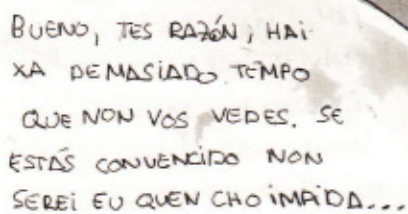 BUENO, TES RAZÓN, HAI
XA DEMASIADO TEMPO
QUE NON VOS VEDES. SE
ESTÁS CONVENCIDO NON
SEREI EU QUEN CHO IMPIDA...